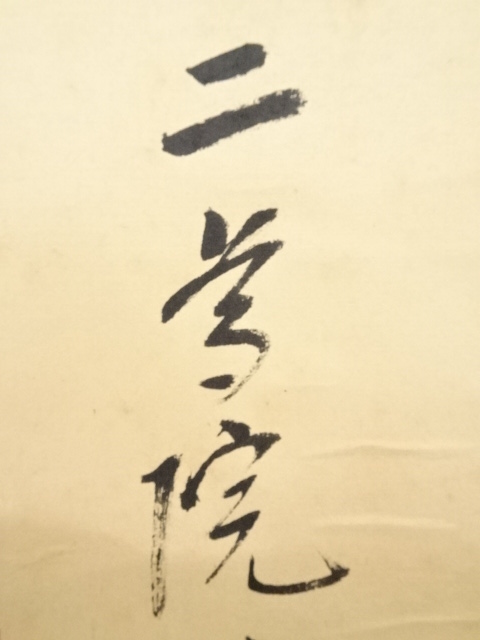 二尊院